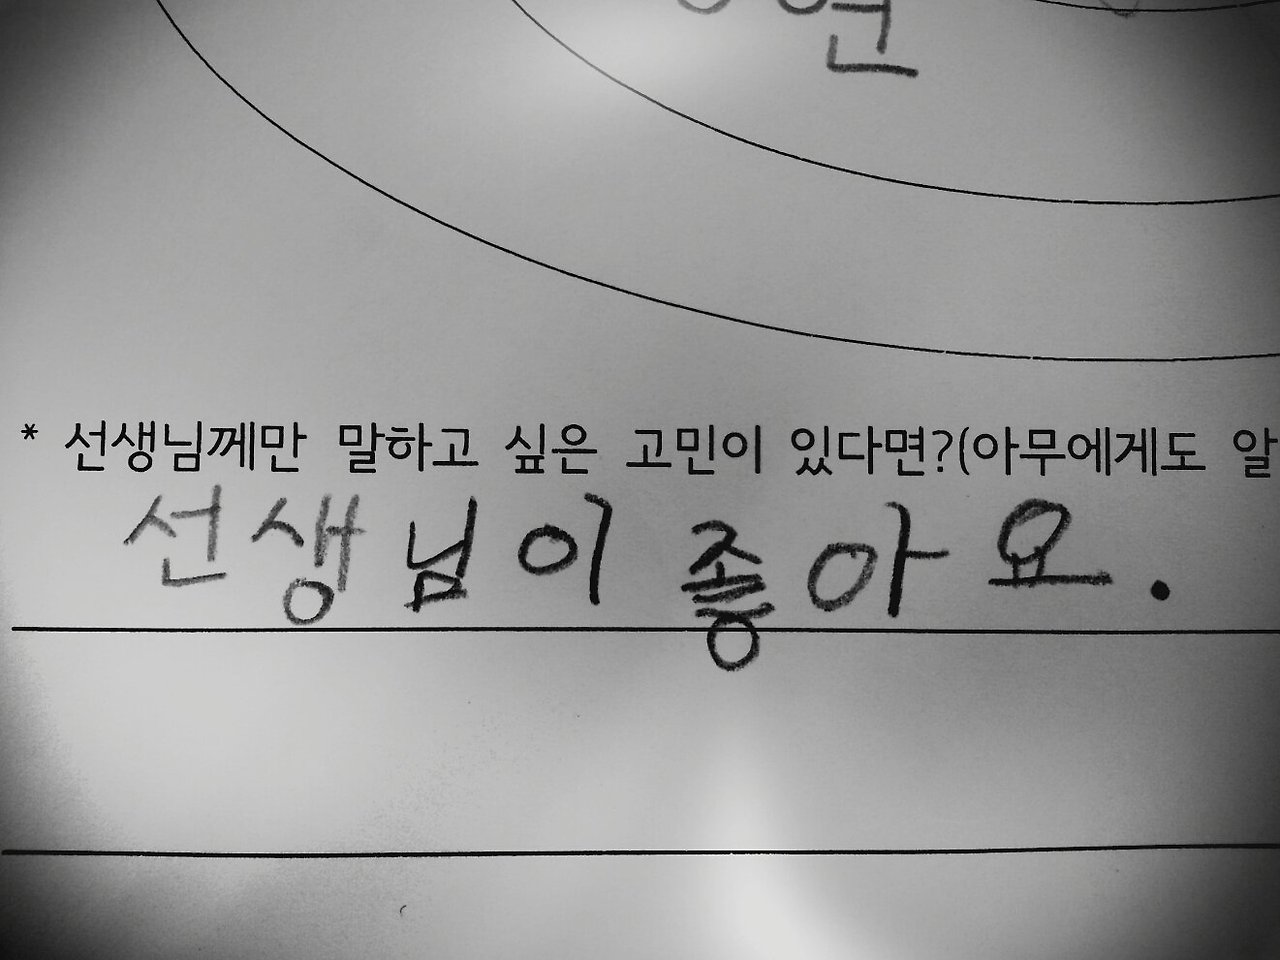 연
* 선생님께만 말하고 싶은 고민이 있다면?(아무에게도 알
선생님이 좋아요.